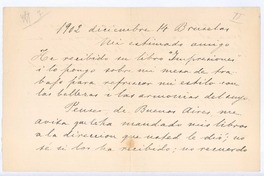 1902 diciembre 14 Bruselas
Mi estimado amigo
He recibido su libro "Impresiones"
i lo pongo sobre mi mesa de tra-
bajo para refrescar mi estilo con
las bellezas i las armonias del suyo.
Peuser, de Buenos Aires, me
avisa que le ha mandado mis libros
a la direccion que usted le dió; no
sé si los ha recibido; no recuerdo